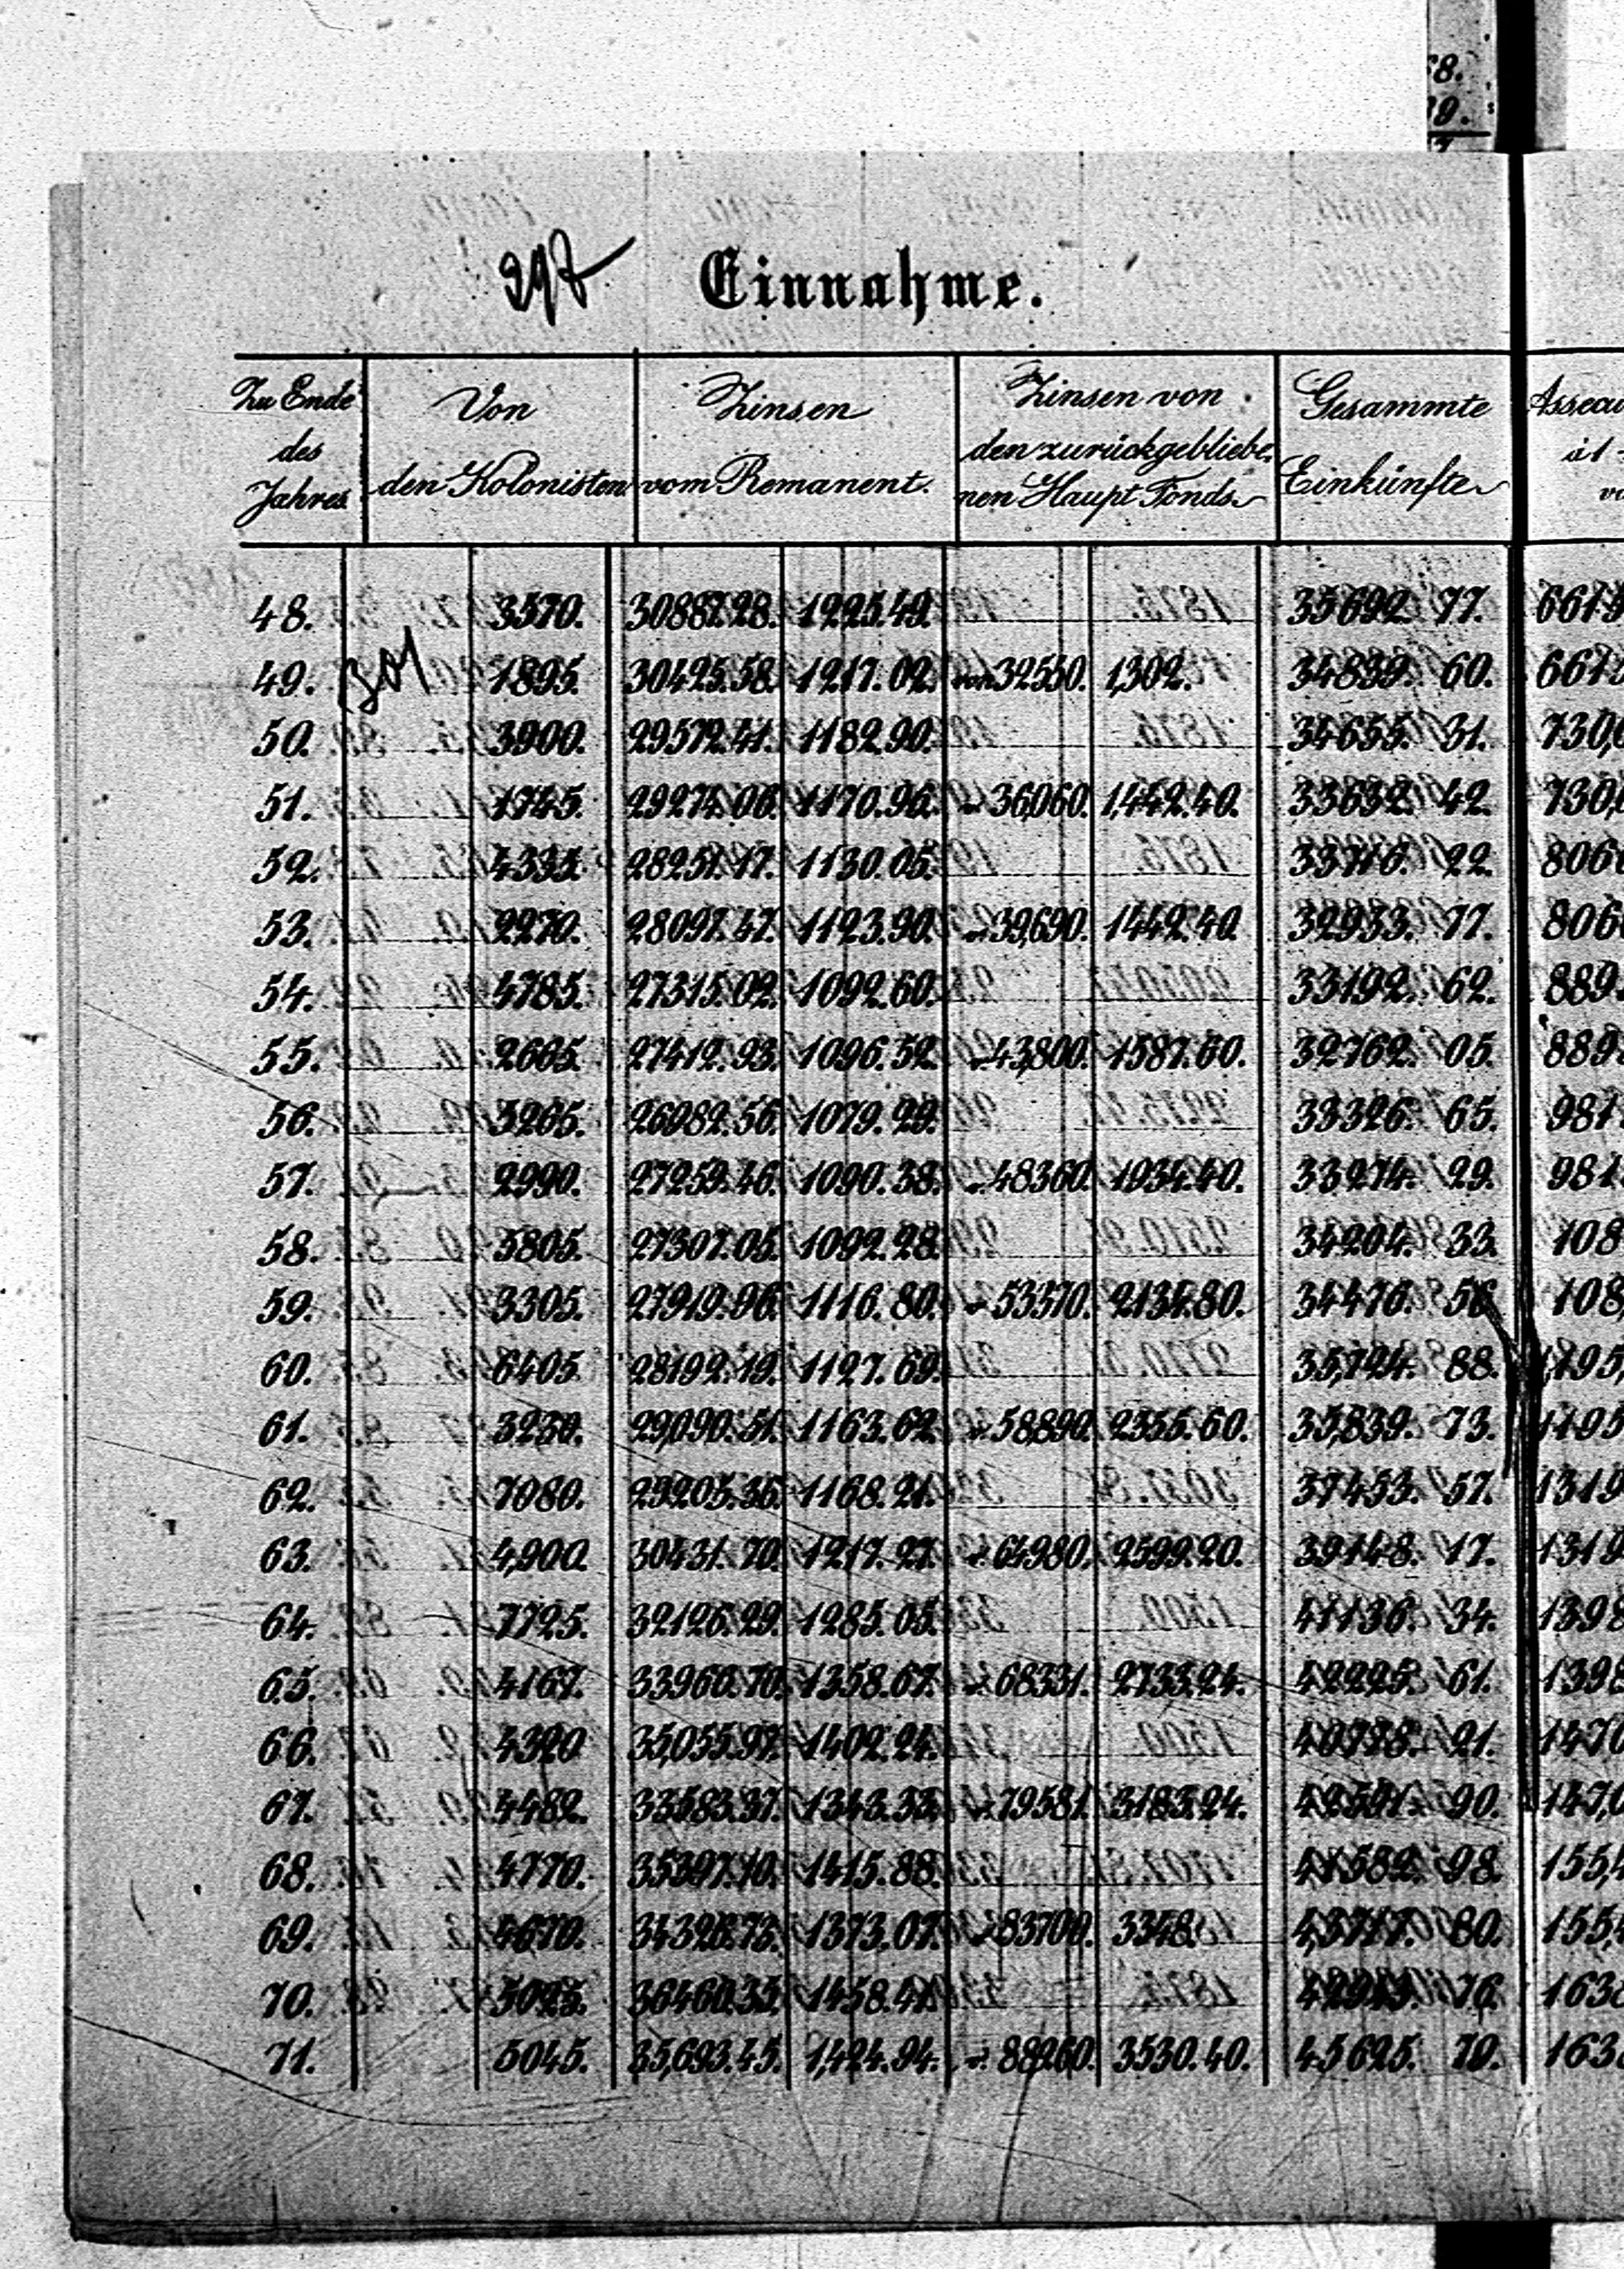 297
Einnahme.
Zu Ende des Jahres
Von den Kolonisten
Zinsen vom Remanent.
Zinsen von den zurückgebliebenen Haupt Fonds
Gesammte Einkünfte
48. 3570. 30887.28. 1235.49. 35692. 77.
49. 301 1895. 30425.58. 1217.02. von 32550. 1,302. 34839. 60.
50. 3900. 29572.41. 1182.90. 34655. 31. 730,
51. 1745. 29274.06. 1170.96. 36,060. 1,442.40. 33632. 42. 730,
52. 4335. 28251.17. 1130.05. 33716. 22. 806
53. 2270. 28097.47. 1123.90. 39,690. 1442.40. 32933. 77. 806
54. 4785. 27315.02. 1092.60. 33192. 62. 889
55. 2665. 27412.93. 1096.52. 43,800. 1587.60. 32762. 05. 889
56. 5265. 26982.36. 1079.29. 33326. 65. 981
57. 2990. 27259.46. 1090.38. 48360. 1934.40. 33274. 29. 981
58. 5805. 27307.05. 1092.28. 34204. 33. 108
59. 3305. 27919.96. 1116.80. 53370. 2134.80. 34476. 56. 108
60. 6405. 28192.19. 1127.69. 35,724. 88. 1,195,
61. 3230. 29,090.51. 1163.62. 58,890. 2355.60. 35,839. 73. 1195
62. 7080. 29205.36. 1168.21. 37453. 57. 1319
63. 4,900. 30431.70. 1217.27. 64980. 2599.20. 39148. 17. 1319
64. 7725. 32126.29. 1285.05. 41136. 34. 139
65. 4167. 33966.70. 1358.67. 68331. 2733.24. 42225. 61. 139
66. 4320 35,055.97. 1402.24. 40778. 21. 147
67. 4482. 33583.37. 1343.33. 79581. 3183.24. 42591. 90. 147,
68. 4770. 35397.10. 1415.88. 41582. 98. 155,
69. 4670. 34326.73. 1373.07. 83700. 3348. 43717. 80. 155,
70. 5025. 36460.35. 1458.41. 42943. 76. 163
71. 5045. 35,693.45. 1,424.94. 88260. 3530.40. 45625. 79. 163